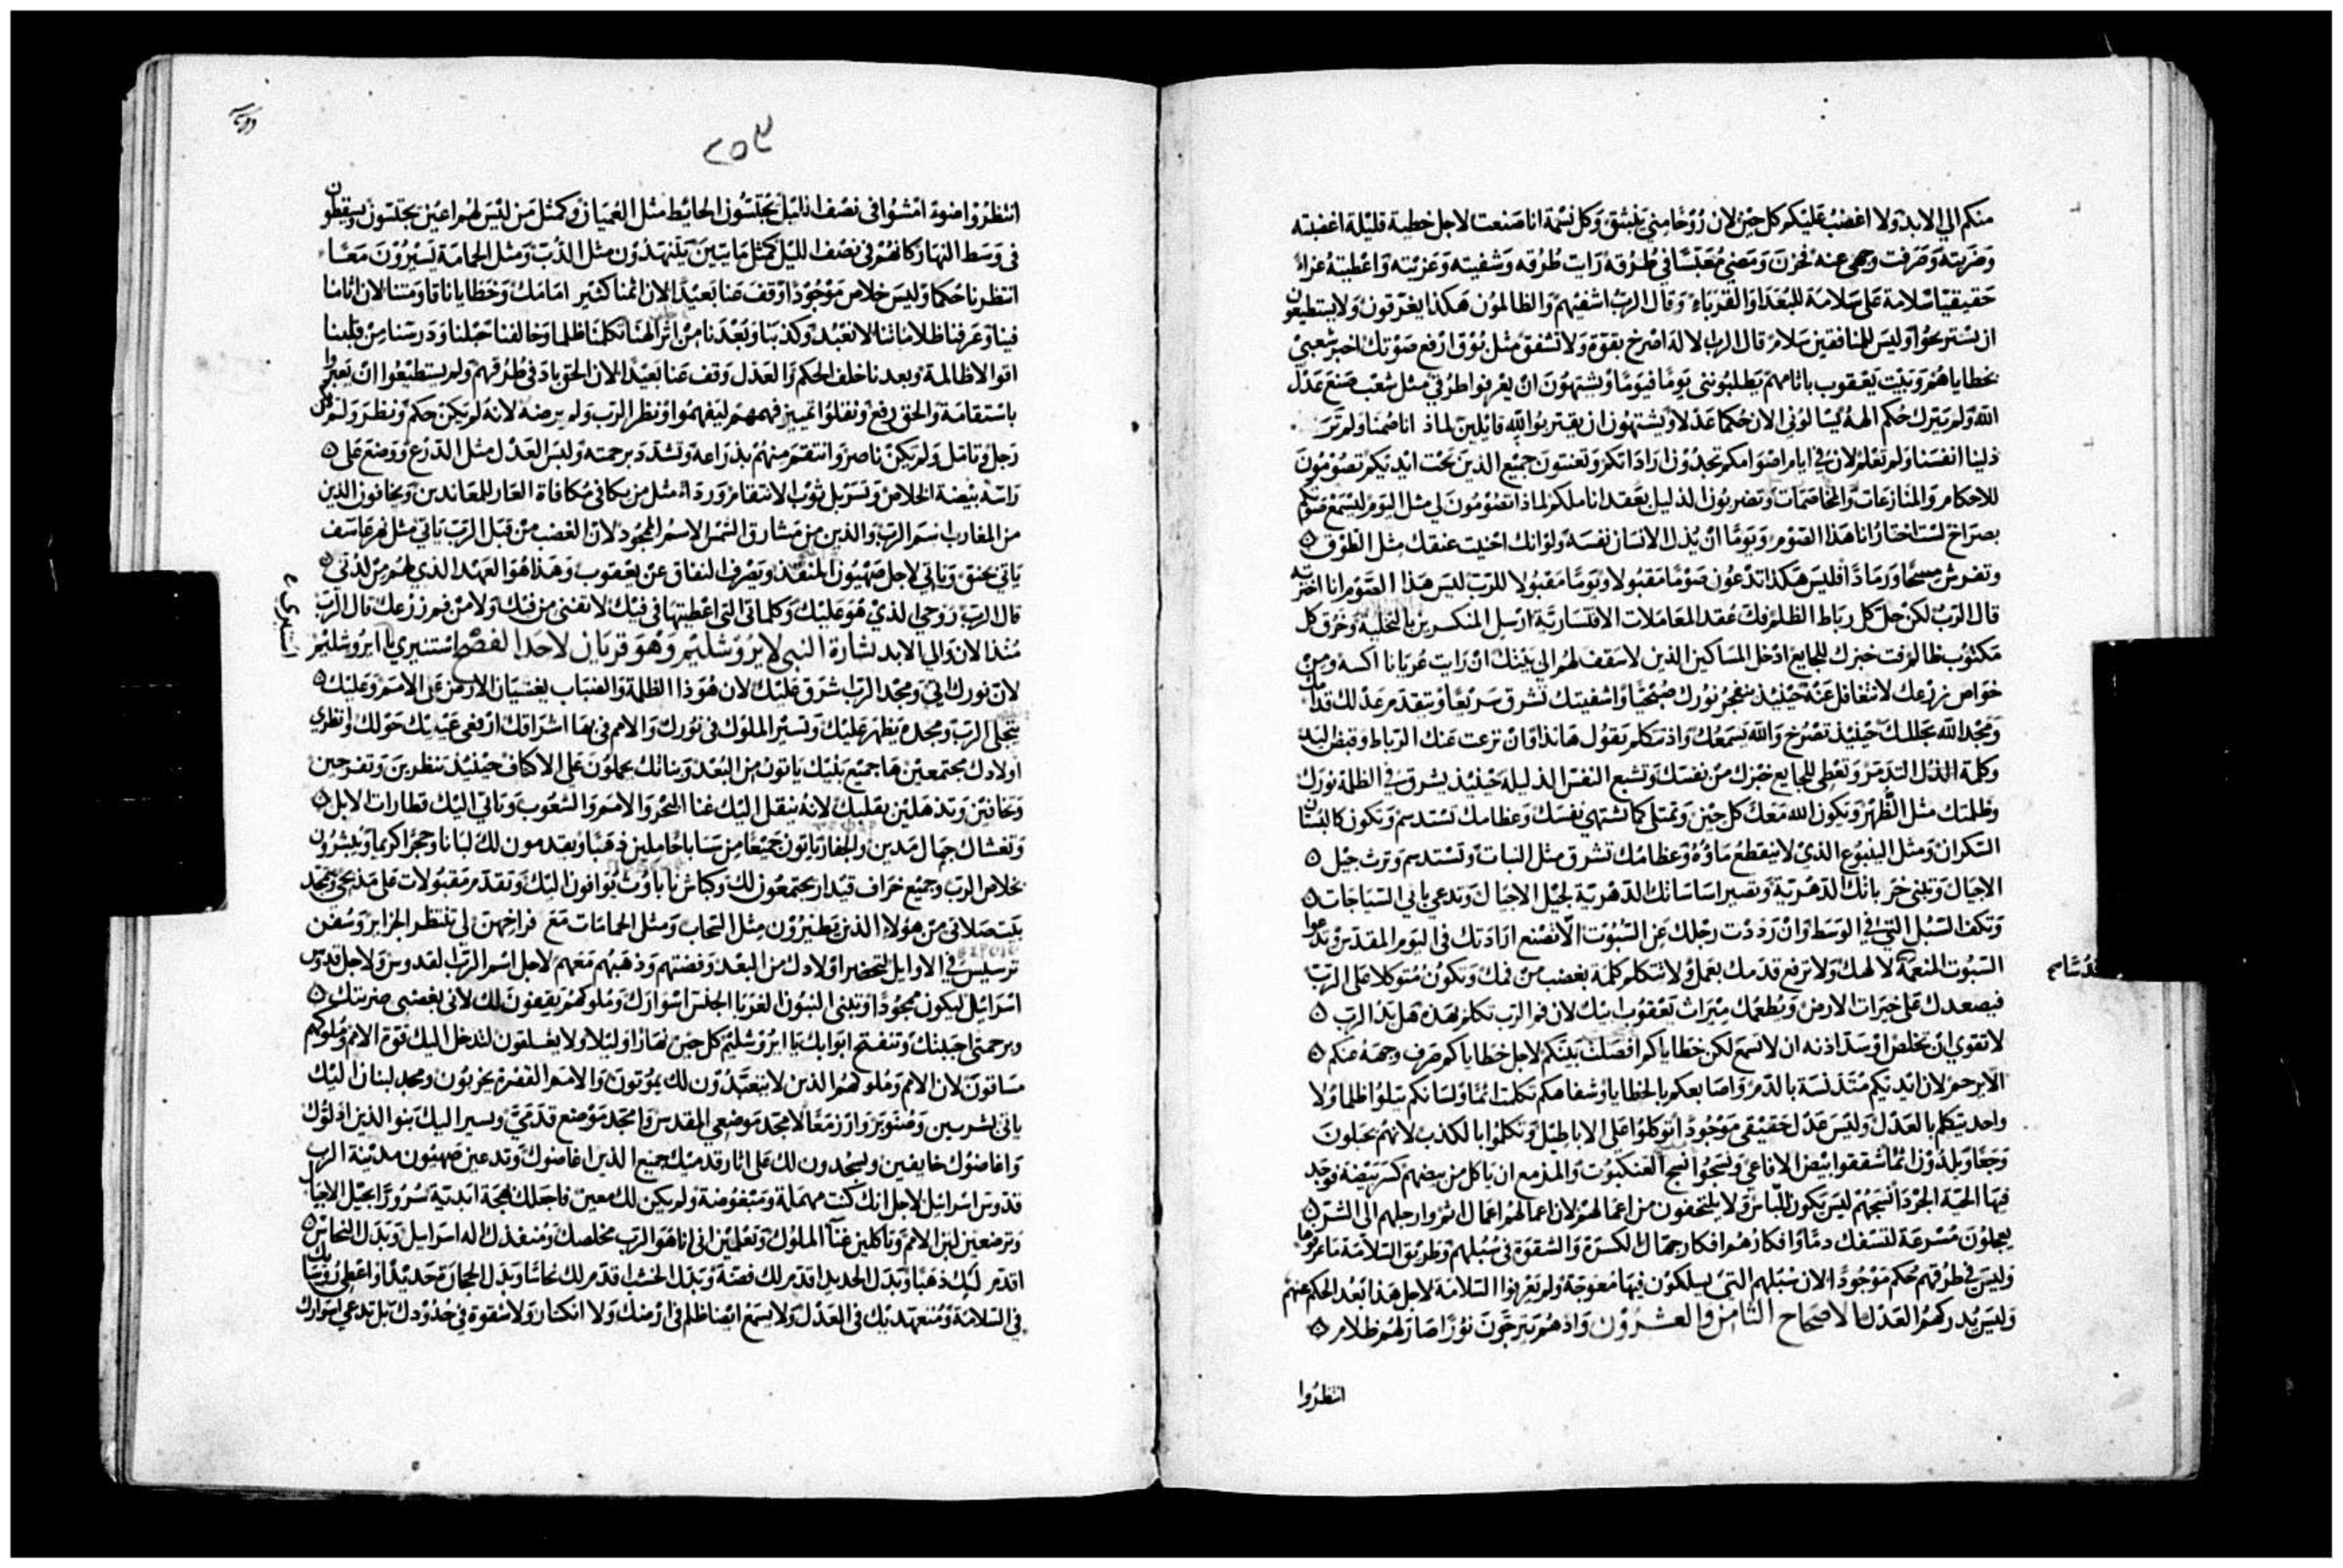 منكم الي الابد ولا اغضب عليكم كل حين لان روحًا مني ينبثق وكل نسمة انا صنعت لاجل خطية قليلة اغضبته
وضربته وصرفت وجهي عنه فحزن ومضي معبسًا في طرقه رايت طرقه وشفيته وعزيته واعطيته عزاءً
حقيقيًا سلامة على سلامة للبعدا والقرباء وقال الرب اشفيهم والظالمون هكذا يغرقون ولا يستطيعون
ان يستريحوا وليس للمنافقين سلام قال الرب الاله اصرخ بقوة ولا تشفق مثل بوق ارفع صوتك اخبر شعبي
بخطاياهم وبيت يعقوب باثامهم يطلبونني يومًا فيومًا ويشتهون ان يعرفوا طرقي مثل شعب صنع عدل
الله ولم يترك حكم الهه يسالوني الان حكما عدلا ويشتهون ان يقتربوا لله قايلين لماذا اناصمنا ولم تر
ذلينا انفسنا ولم تعلم لان في ايام اصوامكم تجدون اراداتكم وتعنتون جميع الذين تحت ايديكم تصومون
للاحكام والمنازعات والمخاصمات وتضربون الذليل بعقد اناملكم لماذا تصومون لي مثل اليوم ليسمع صوتكم
بصراخ لست اختار انا هذا الصوم ويومًا ان يذل الانسان نفسه ولو انك احنيت عنقك مثل الطوق
وتفرش مسحًا ورمادًا فليس هكذا تدعون صومًا مقبولا ويومًا مقبولا للرب ليس هذا الصوم انا اخترته
قال الرب لكن حل كل رباط الظلم فك عقد المعاملات الاقتسارية ارسل المنكسرين بالتخلية وخرق كل
مكتوب ظالم فت خبزك للجايع ادخل المساكين الذين لا سقف لهم الي بيتك ان رايت عريانا اكسه ومن
خواص زرعك لا تتغافل عنه حينيذ ينفجر نورك صبحيًا واشفيتك تشرق سريعًا ويتقدم عدلك قدامك
ومجد الله يجللك حينيذ تصرخ والله يسمعك واذ تتكلم يقول هانذا وان نزعت عنك الرباط وقبض اليد
وكلمة الذل التذمر وتعطي للجايع خبزك من نفسك وتشبع النفس الذليلة حينيذ يشرق في الظلمة نورك
وظلمتك مثل الظهر ويكون الله معك كل حين وتمتلي كما تشتهي نفسك وعظامك تستدسم وتكون كالبستان
السكران ومثل الينبوع الذي لا ينقطع ماؤه وعظامك تشرق مثل النبات وتستدسم وترث جيل
الاجيال وتبني خرباتك الدهرية وتصير اساساتك الدهرية لجيل الاجيال وتدعي باني السياجات
وتكف السبل التي في الوسط وان رددت رجلك عن السبوت الا تصنع ارادتك في اليوم المقدس وتدعوا
السبوت المنعمة لالهك ولا ترفع قدمك بعمل ولا تتكلم كلمة بغضب من فمك وتكون متوكلا على الرب
فيصعدك على خيرات الارض ويطعمك ميراث يعقوب ابيك لان فم الرب تكلم بهذه هل يد الرب
لا تقوي ان تخلص او سد اذنه ان لا تسمع لكن خطاياكم افصلت بينكم لاجل خطاياكم صرف وجهه عنكم
الا يرحم لان ايديكم متدنسة بالدم واصابعكم بالخطايا وشفاهكم تكلمت اثمًا ولسانكم يتلوا ظلما ولا
واحد يتكلم بالعدل وليس عدل حقيقي موجودًا توكلوا على الاباطيل وتكلموا بالكذب لانهم يحبلون
وجعًا ويلدون اثمًا شققوا بيض الافاعي ونسجوا نسج العنكبوت والمذمع ان ياكل من بيضهم كسر بيضة فوجد
فيها الحية الجردا نسجهم ليس يكون للباس ولا يلتحفون من اعمالهم لان اعمالهم اعمال اثم وارجلهم الى الشر
يعجلون مسرعة لتسفك دمًا وافكارهم افكار جهال الكسرة والشقوة في سبلهم وطريق السلامة ما عرفوها
وليس في طرقهم حكم موجودًا لان سبلهم التي يسلكون فيها معوجة ولم يعرفوا السلامة لاجل هذا بعد الحكم عنهم
وليس يدركهم العدل الاصحاح الثامن والعشرون واذ هم يترجون نورًا صار لهم ظلام
انتظروا
٢٥٣
انتظروا ضوءً امشوا في نصف الليل يجتسون الحايط مثل العميان وكمثل من ليس لهم اعين يجتسون ويسقطون
في وسط النهار كانهم في نصف الليل كمثل مايتين يتنهدون مثل الدب ومثل الحمامة يسيرون معًا
انتظرنا حكما وليس خلاص موجودًا وقف عنا بعيدًا لان اثمنا كثير امامك وخطايانا قاومتنا لان اثامنا
فينا وعرفنا ظلاماتنا لانعبد وكذبنا وبعدنا من اثر الهنا تكلمنا ظلما وخالفنا حبلنا ودرسنا من قلبنا
اقوالا ظالمة وبعدنا خلف الحكم والعدل وقف عنا بعيدًا لان الحق باد في طرقهم ولم يستطيعوا ان يعبروا
باستقامة والحق رفع ونقلوا تمييز فهمهم ليفهموا ونظر الرب ولم يرضه لانه لم يكن حكم ونظر ولم يكن
رجل وتامل ولم يكن ناصر وانتقم منهم بذراعه وتشدد برحمته ولبس العدل مثل الدرع ووضع على
راسه بيضة الخلاص وتسربل ثوب الانتقام ورداء مثل من يكافي مكافاة العار للمعاندين ويخافون الذين
من المغارب اسم الرب والذين من مشارق الشمس الاسم المجود لان الغضب من قبل الرب ياتي مثل نهر عاسف
ياتي بحنق وياتي لاجل صهيون المنقذ ويصرف النفاق عن يعقوب وهذا هو العهد الذي لهم من لدني
قال الرب روحي الذي هو عليك وكلماتي التي اعطيتها في فيك لا تفنى من فيك ولا من فم زرعك قال الرب
منذ الان والي الابد بشارة النبي لايروشليم وهو قريان لاحد الفصح استنيري يا ايروشليم
لان نورك اتي ومجد الرب اشرق عليك لان هوذا الظلمة والضباب يغشيان الارض على الامم وعليك
يتجلى الرب ومجده يظهر عليك وتسير الملوك في نورك والامم في بهاء اشراقك ارفعي عينيك حولك وانظري
اولادك مجتمعين ها جميع بنيك ياتون من البعد وبناتك يحملون على الاكتاف حينيذ تنظرين وتفرحين
وتخافين وتذهلين بقلبك لانه ينقل اليك غنا البحر والامم والشعوب وتاتي اليك قطارات الابل
وتغشاك جمال مدين والجفار ياتون جميعًا من سابا حاملين ذهبًا ويقدمون لك لبانا وحجرًا كريما ويبشرون
بخلاص الرب وجميع خراف قيدار يجتمعون لك وكباش ناباوث يوافون اليك وتقدم مقبولات على مذبحي ويمجد
بيت صلاتي من هولاء الذين يطيرون مثل السحاب ومثل الحمامات مع فراخهن لي تنتظر الجزاير وسفن
ترسيس في الاوايل لتحضر اولادك من البعد وفضتهم وذهبهم معهم لاجل اسم الرب القدوس ولاجل قدوس
اسرائيل ليكون مجودًا وتبني البنون الغربا الجنس اسوارك وملوكهم يقفون لك لاني بغضبي ضربتك
وبرحمتي احببتك وتنفتح ابوابك يا ايروشليم كل حين نهارًا وليلا ولا يغلقون لتدخل اليك قوة الامم وملوكهم
مساقون لان الامم وملوكهم الذين لا يتعبدون لك يموتون والامم القفرة يخربون ومجد لبنان اليك
ياتي بشربين وصنوبر وارز معًا لامجد موضعي المقدس وامجد موضع قدمي وتسير اليك بنوا الذين اذلوك
واغاضوك خايفين ويسجدون لك على اثار قدميك جميع الذين اغاضوك وتدعين صهيون مدينة الرب
قدوس اسرائيل لاجل انك كنت مهملة ومبغوضة ولم يكن لك معين فاجعلك بهجة ابدية سرورًا بجيل الاجيال
وترضعين لبن الامم وتاكلين غنآ الملوك وتعلمين اني انا هو الرب مخلصك ومنقذك اله اسرايل وبدل النحاس
اقدم لك ذهبًا وبدل الحديد اقدم لك فضة وبدل الخشب اقدم لك نحاسًا وبدل الحجارة حديدًا واعطي روساك
في السلامة ومتعهديك في العدل ولا يسمع ايضا ظلم في ارضك ولا انكسار ولا شقوة في حدودك بل تدعي اسوارك
استنيري